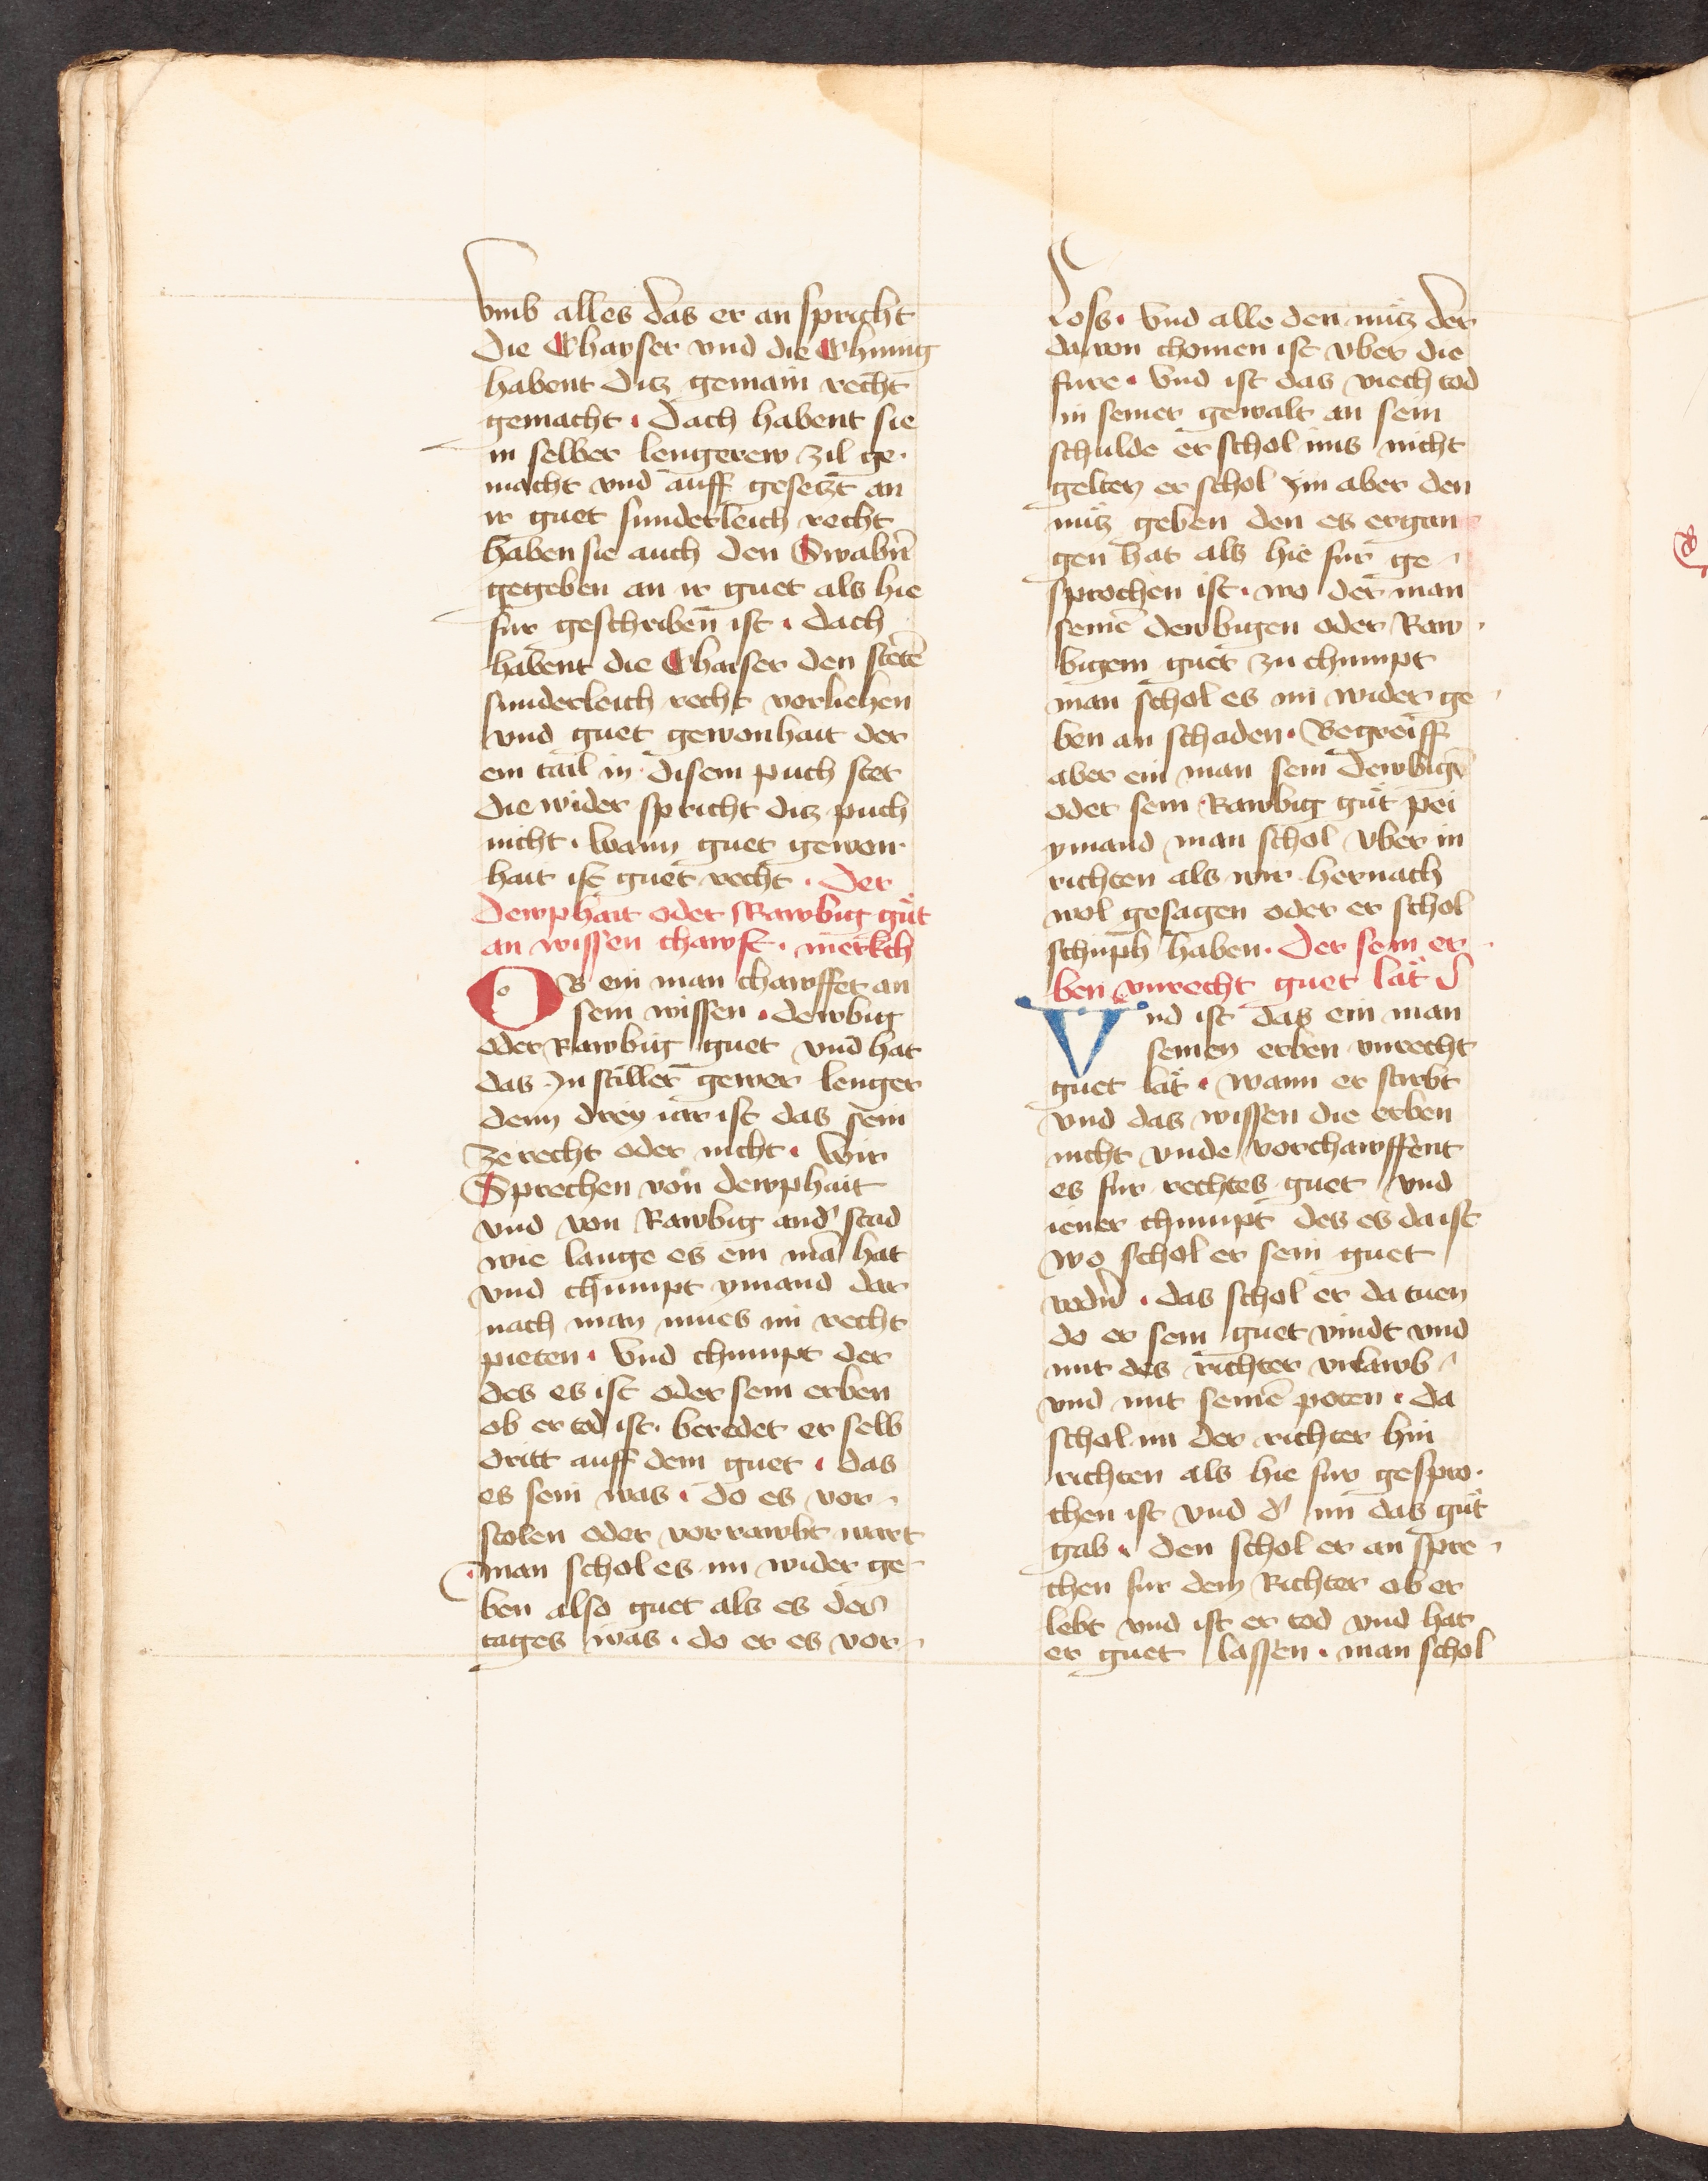 vmb alles das er an spricht
die Chayser vnd die Chunig
habent ditz gemain recht
gemacht · Dach habent sie
in selber lengerew zil ge·
macht vnd auff gesetzt an
ir guet sunderleich recht
haben sie auch den Swabn̄
gegeben an ir guet als hie
fur geschriben ist · dach
habent die Chaiser den stetē
sunderleich recht vorliehen
vnd guet gewonhait der
ein tail in disem puch stet
die wider spricht ditz puch
nicht · wann guet gewon
hait ist guet recht · Der
dewphait oder Rawbig gut
an wissen chawft · merkch
Ob ein man chawffet an
sein wissen · dewbig
oder Rawbig guet vnd hat
das Jn stiller gewer lenger
denn drey iar ist das sein
ze recht oder nicht · Wir
Sprechen von dewphait
vnd von Rawbig and' stad
wie lange es ein mā hat
vnd chumpt ymand dar
nach man mues im recht
pieten · Vnd chumpt der
des es ist oder sein erben
ob er tod ist · beredet er selb
dritt auff dem guet · das
es sein was · do es vor
stolen oder vorrawbt wart
man schol es im wider ge
ben also guet als es des
tages was · do er es vor
loss · Vnd alle den nutz der
dauon chomen ist vber die
fure · Vnd ist das viech tod
in seiner gewalt an sein
schulde er schol ims nicht
gelten er schol ym aber den
nutz geben den es ergan
gen hat als hie fur ge
sprochen ist · wo der man
seinē dewbigen oder Raw
bigem guet zu chumpt
man schol es im wider ge
ben an schaden · Begreiff
aber ein man sein dewbigs
oder sein Rawbig gut pei
ymand man schol vber in
richten als wir hernach
wol gesagen oder er schol
schuph haben · Der sein er
ben vnrecht guet lat d'
Vnd ist das ein man
seinen erben vnrecht
guet lat · wann er stirbt
vnd das wissen die erben
nicht vnde vorchawffent
es fur rechtes guet vnd
iener chumpt des es da ist
wo schol er sein guet
vodn̄ · das schol er da tuen
do er sein guet vindt vnd
mit des richter vrlawb
vnd mit seinē poten · da
schol im der richter hin
richten als hie fur gespro·
chen ist vnd d' im das gut
gab · den schol er an spre
chen fur dem Richter ob er
lebt vnd ist er tod vnd hat
er guet lassen · man schol